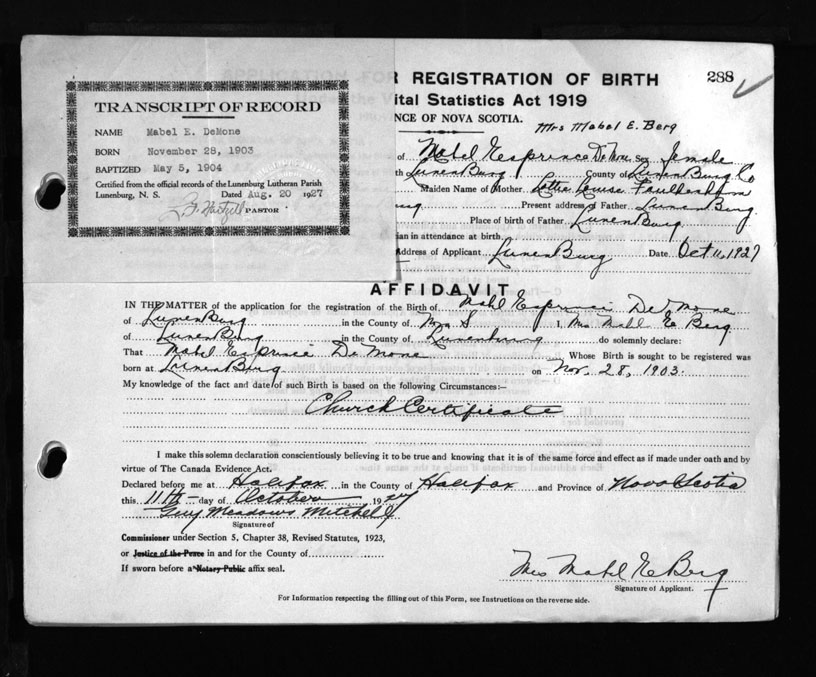 R REGISTRATION OF BIRTH 288
ital Statistics Act 1919
NCE OF NOVA SCOTIA.
Mrs Mabel E. Berg
TRANSCRIPT OF RECORD
NAME Mabel E. DeMone
BORN November 28, 1903
BAPTIZED May 5, 1904
Certified from the official records of the Lunenburg Lutheran Parish
Lunenburg, N. S. Dated Aug. 20 1927
PASTOR
of Mabel Esprince DeMone Sex female
th LunenBurg County of LunenBurg Co
Maiden Name of Mother Lottie Louise
urg Present address of Father LunenBurg
Place of birth of Father LunenBurg
ian in attendance at birth
Address of Applicant LunenBurg Date Oct 11, 1927
AFFIDAVIT
IN THE MATTER of the application for the registration of the Birth of Mabel DeMone
of LunenBurg in the County of N S I, Mrs Mabel E Berg
of LunenBurg in the County of Lunenburg do solemnly declare:
That Mabel DeMone Whose Birth is sought to be registered was
born at LunenBurg on Nov. 28, 1903
My knowledge of the fact and date of such Birth is based on the following Circumstances:–
Church Certificate
I make this solemn declaration conscientiously believing it to be true and knowing that it is of the same force and effect as if made under oath and by
virtue of The Canada Evidence Act.
Declared before me at Halifax in the County of Halifax and Province of Nova Scotia
this 11th day of October 1927
Guy Meadows Mitchell
Signature of
Commissioner under Section 5, Chapter 38, Revised Statutes, 1923,
or Justice of the Peace in and for the County of
If sworn before a Notary Public affix seal.
Mrs Mabel E Berg
Signature of Applicant.
For Information respecting the filling out of this Form, see Instructions on the reverse side.